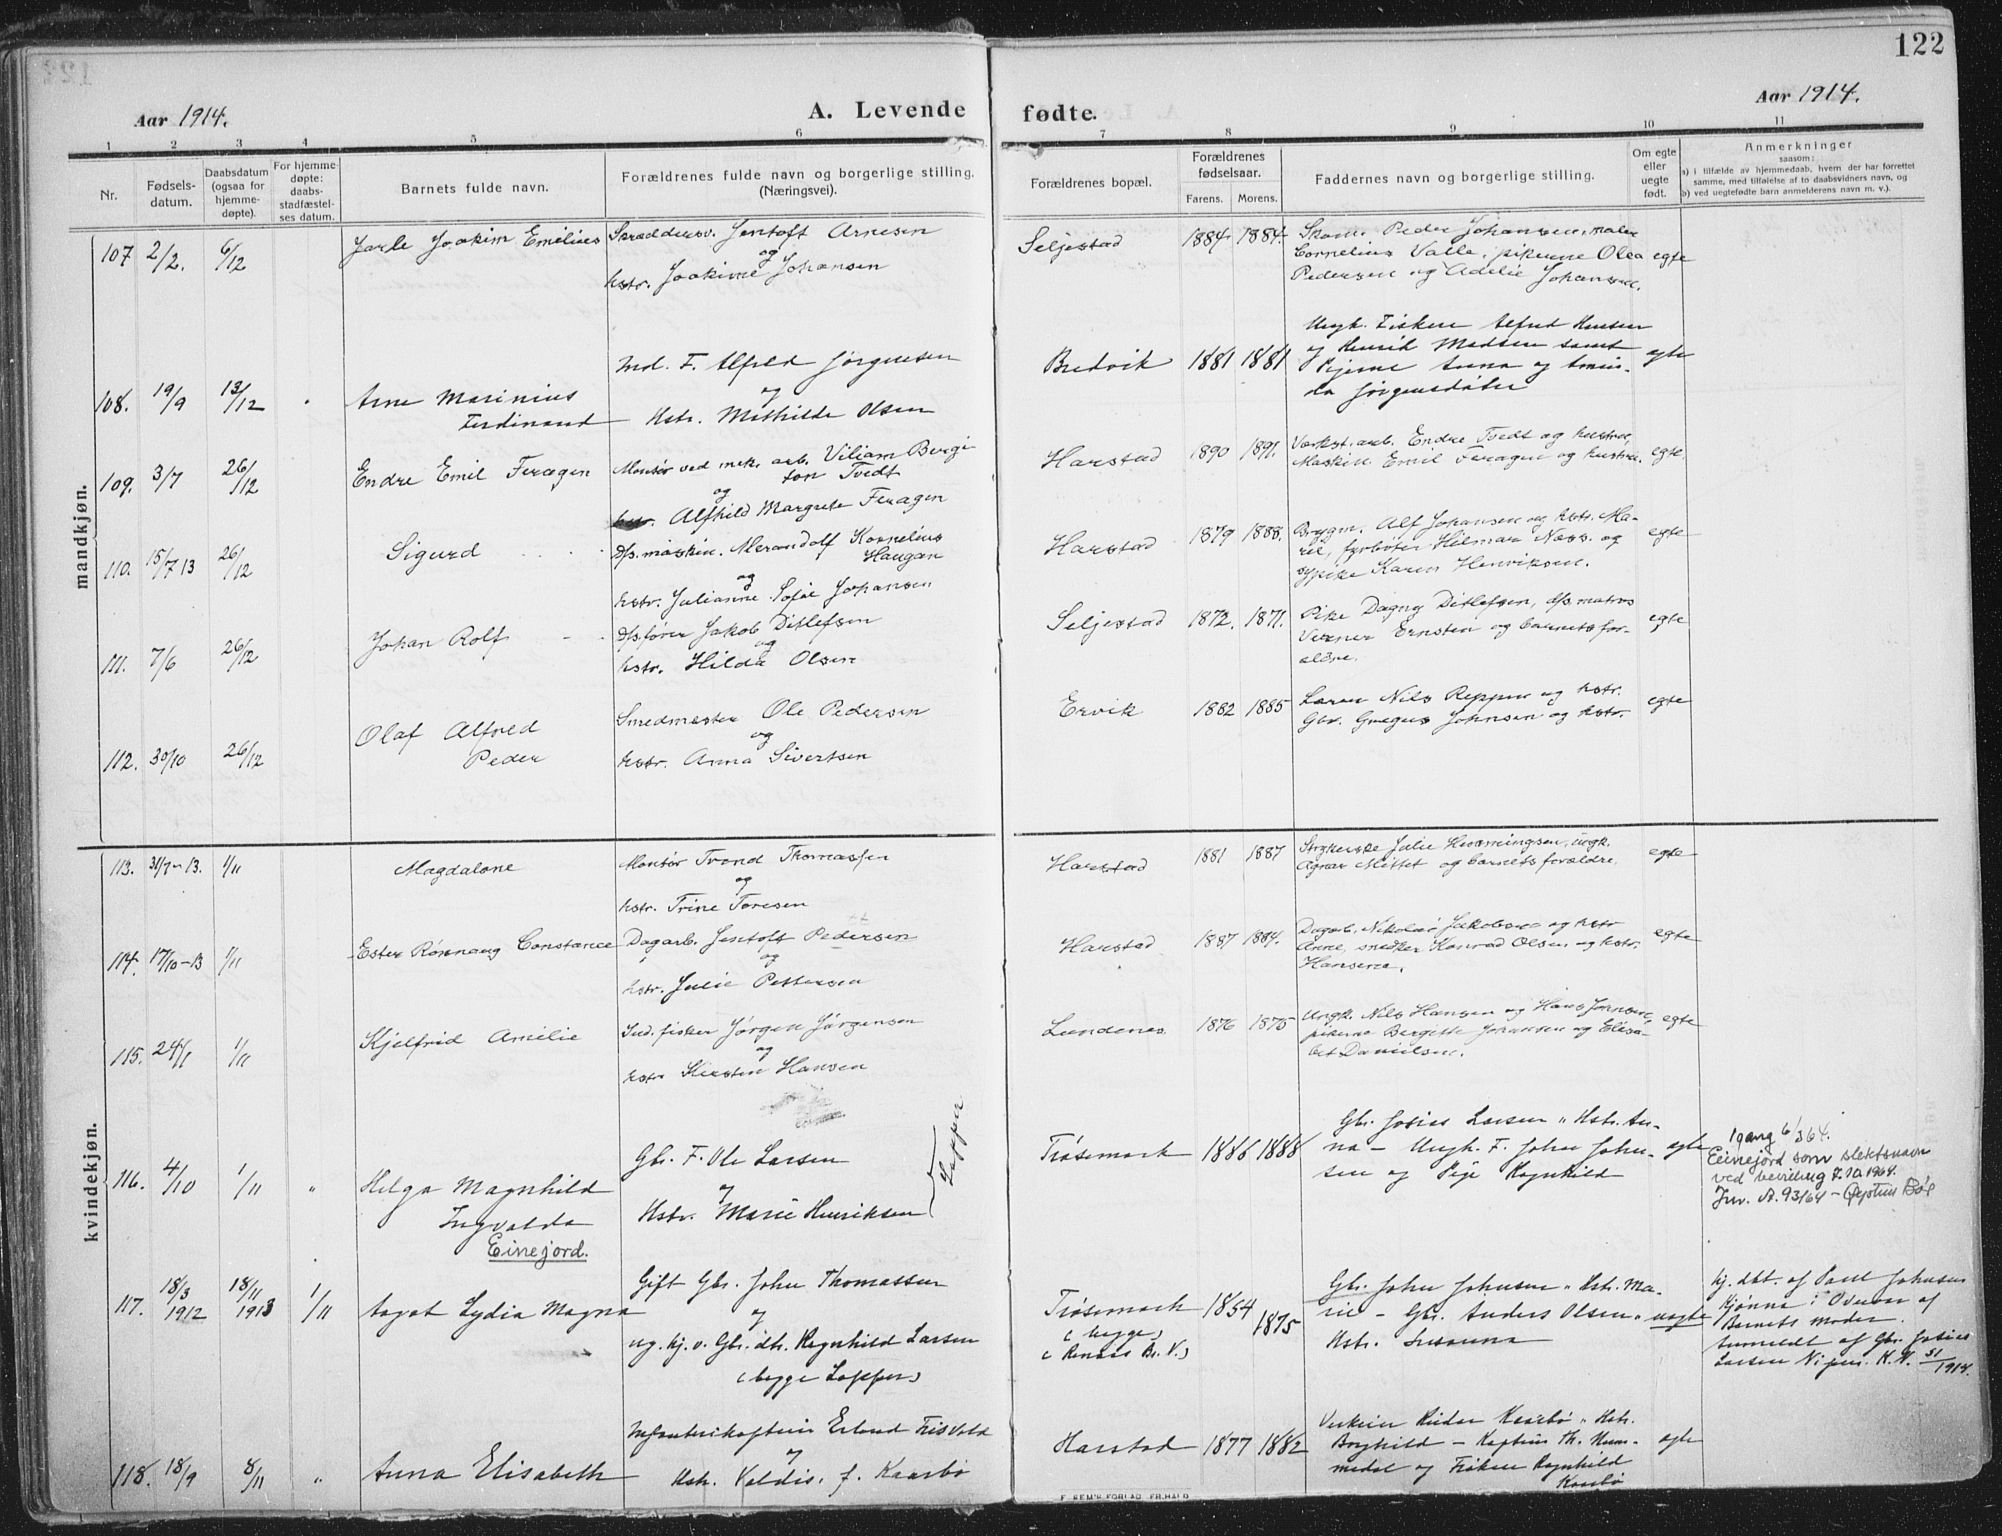 122
Aar 1914.
A. Levende fødte.
Aar 1914.
1 2 3 4 5 6 7 8 9 10 11
Nr.
Fødsels-
datum.
Daabsdatum
(ogsaa for
hjemme-
døpte).
For hjemme-
døpte:
daabs-
stadfæstel-
ses datum.
Barnets fulde navn.
Forældrenes fulde navn og borgerlige stilling.
(Næringsvei).
Forældrenes bopæl.
Forældrenes
fødselsaar.
Farens. Morens.
Faddernes navn og borgerlige stilling.
Om egte
eller
uegte
født.
Anmerkninger
saasom:
a) i tilfælde av hjemmedaab, hvem der har forrettet
samme, med tilføielse af to daabsvidners navn, og
b) ved uegtefødte barn anmelderens navn m. v.).
mandkjøn.
107 2/2. 6/12 Jarle Joakim Emelius
Skræddersv. Jentoft Arnesen
og
hstr. Joakime Johansen
Seljestad 1884 1884.
Skom. Peder Johansen, maler
Cornelius Valle, pikerne Olea
Pedersen og Adelie Johansen.
egte
108. 19/9 13/12 Arne Marinius
Ferdinand
Ind. F. Alfred Jørgensen
og
Hstr. Mathilde Olsen
Bredvik 1881 1881
Ungk. Fisker Alfred Hansen
og Henrik Madsen samt
Pigerne Anna og Amin-
da Jørgensdåter
egte
109. 3/7 26/12 Endre Emil Feragen
Montør ved mek. arb. Viliam Bergi-
ton Tvedt
og
hstr. Alfhild Margrete Feragen
Harstad 1890 1891.
Værkst. arb. Endre Tvedt og hustru,
Maskin. Emil Feragen og hustru.
egte.
110. 15/7 13 26/12 Sigurd
D/s. maskin. Merandolf Kornelius
Haugan
og
hstr. Julianne Sofie Johansen
Harstad 1879 1888.
Brygm. Alf Johansen og hstr. Ma-
rie, fyrbøter Hilmar Næss og
sypike Karen Henriksen.
egte
111. 7/6 26/12 Johan Rolf
D/s fører Jakob Ditlefsen
og
hstr. Hilda Olsen
Seljestad 1872. 1871.
Pike Dagny Ditlefsen, d/s. matros
Verner Ernsten og barnets for-
ældre.
egte
112. 30/10 26/12 Olaf Alfred
Peder
Smedmester Ole Pedersen
og
hstr. Anna Sivertsen
Ervik 1882 1885
Læren Nils Reppen og hstr.
Gbr. Gregus Johnsen og hstr.
egte
kvindekjøn.
113. 31/7-13. 1/11 Magdalone
Montør Trond Thomassen
og
hstr. Trine Toresen
Harstad 1881 1887
Strykerske Julie Hemmingsen, ungk.
Agnar Mittet og barnets forældre.
egte
114. 17/10-13 1/11 Ester Rønnaug Constance
Dagarb. Jentoft Pedersen
og
hstr. Julie Pettersen
Harstad 1887 1884.
Dagarb. Nikolai Jakobsen og hstr.
Anne, snedker Konrad Olsen og hstr.
Hansine.
egte
115. 24/1 1/11 Kjelfrid Amelie
Ind. fisker Jørgen Jørgensen
og
hstr Kirsten Hansen
Lundenes 1876 1875
Ungk. Nils Hansen og Hans Johnsen,
pikerne Bergitte Johansen og Elisa-
bet Danielsen.
egte
116. 4/10 1/11 " Helga Magnhild
Ingvalda
Einejord.
Gbr. F. Ole Larsen
og
Hstr. Marie Henriksen
Lapper
Trøsemark 1886 1888
Gbr. Josias Larsen " Hstr. An-
na – Ungk. F. John John-
sen og Pige Ragnhild
egte
1 gang 6/3 64.
Einejord som slektsnavn
ved bevilling 7.10.1964.
Jnr. A. 93/64 –
117. 18/3 1912 18/11 1913 1/11 Aagot Lydia Magna
Gift Gbr. John Thomassen
og
ug. kj. v. Gbr. dtr. Ragnhild Larsen
(begge Lapper)
Trøsemark
(begge)
1854 1875
Gbr. John Johnsen " Hstr. Ma-
rie – Gbr. Anders Olsen "
Hstr. Susanna
uegte
hj. dbt. af Paul Johnsen
Kjønna i Overvær af
Barnets moder.
Anmeldt af Gbr. Josias
Larsen
118. 18/9 8/11 " Anna Elisabeth
Infanterikaptein Erland Frisvold
og
Hstr. Valdis, f. Kaarbø
Harstad 1877 1882
Verkeier Reidar Kaarbø " Hstr.
Borghild – Kaptein Th. Hum-
medal og Frøken Ragnhild
Kaarbø
egte